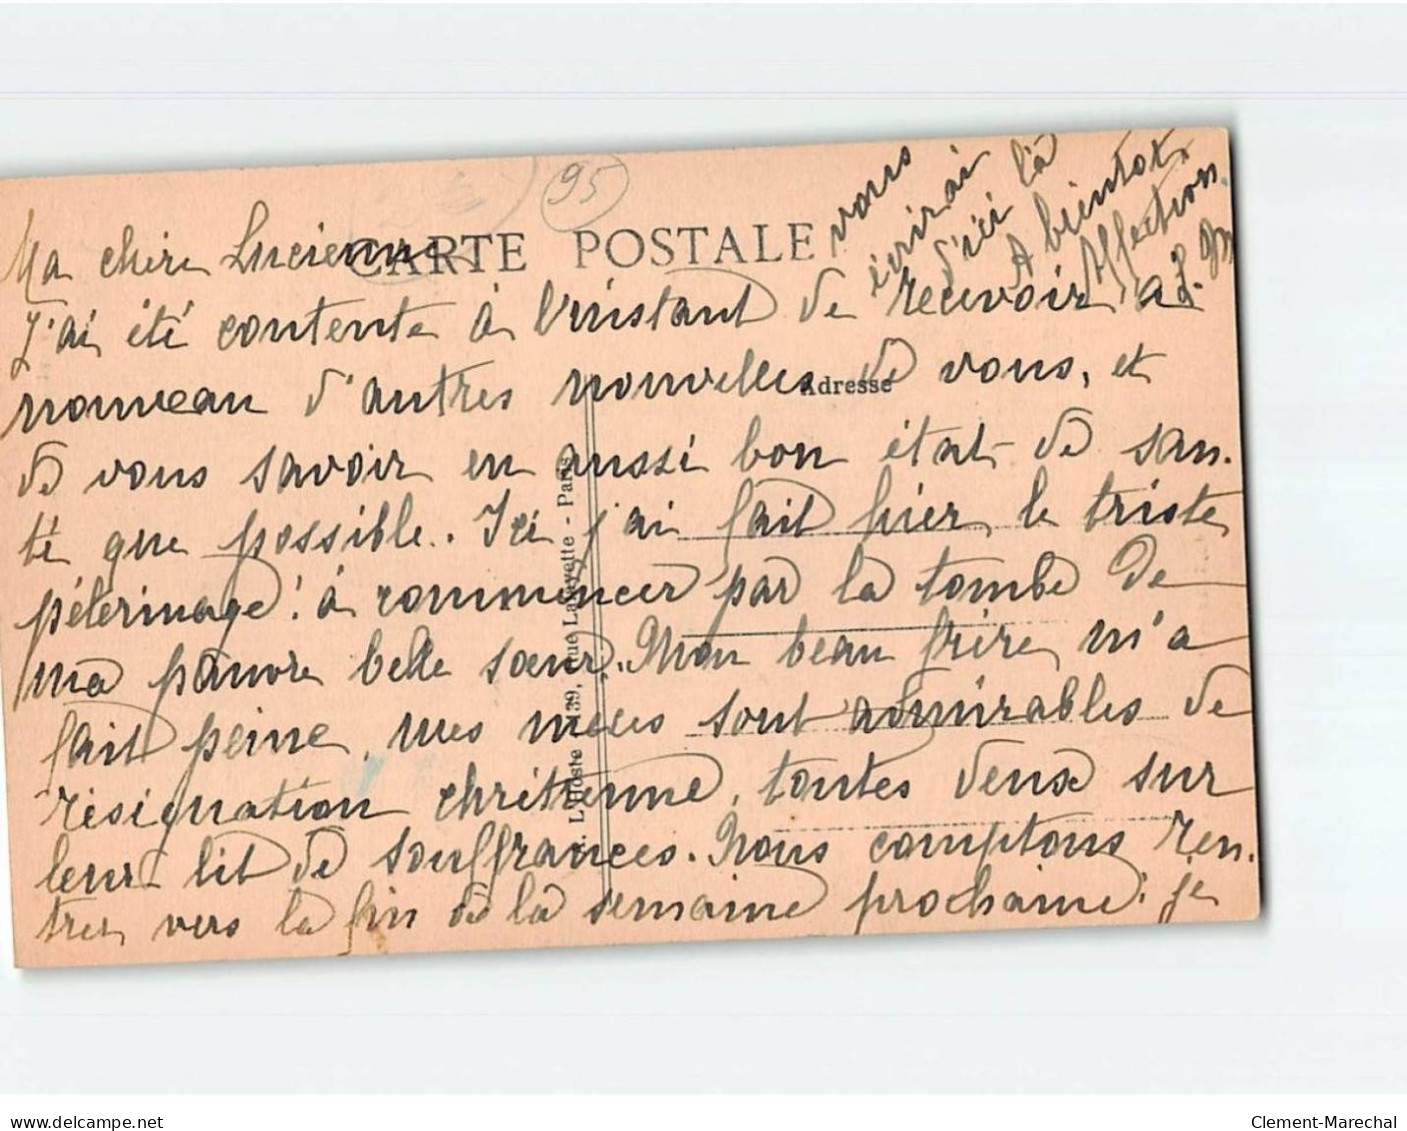 95
CARTE POSTALE
Ma chère Lucienne
J'ai été contente à l'instant de recevoir à
nouveau d'autres nouvelles de vous, et
de vous savoir en aussi bon état de san-
té que possible. Ici j'ai fait hier le triste
pélerinage! à commencer par la tombe de
ma pauvre belle sœur. Mon beau frère m'a
fait peine, mes nièces sont admirables de
résignation chrétienne, toutes deux sur
leur lit de souffrances. Nous comptons ren-
trer vers la fin de la semaine prochaine: je
vous
écrirai
d'ici là
A bientot
Affection
Adresse
L'Hoste 139, rue Lafayette - Paris
delcampe.net
Clement-Marechal